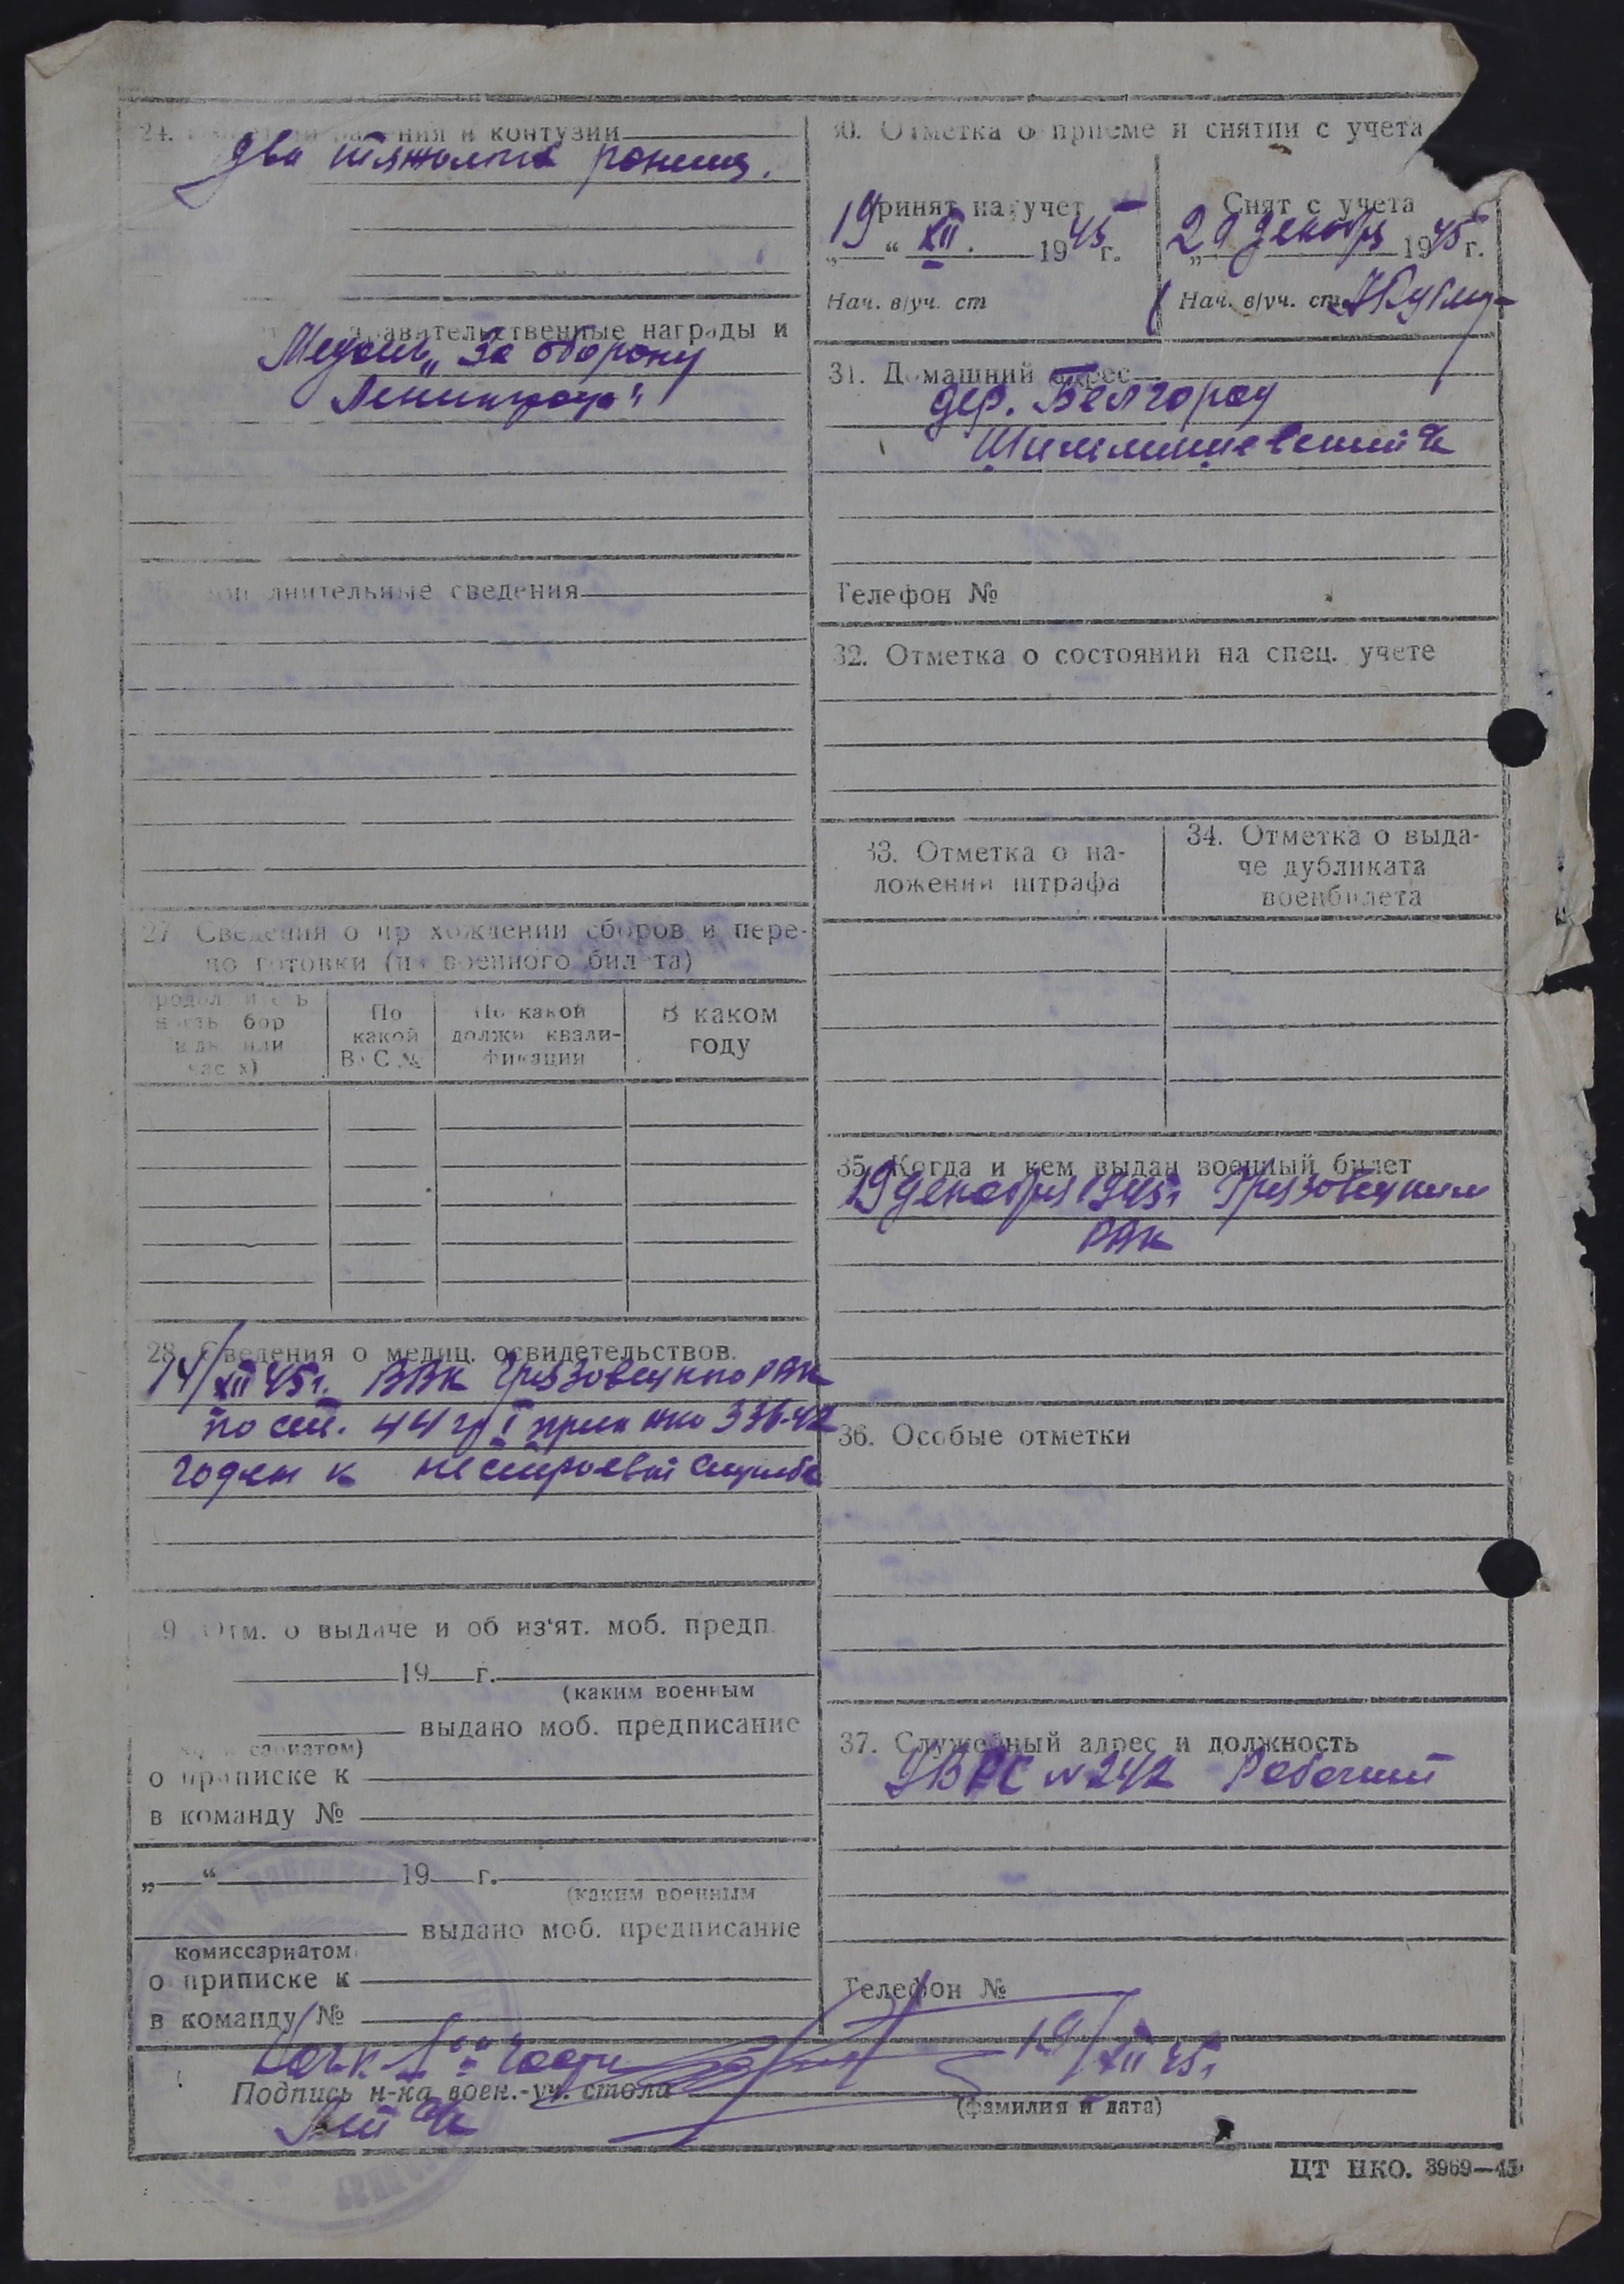 24. ения и контузии
два тяжолых ранения.
равительственные награды и
Медаль „За оборону
Ленинграда"
лнительные сведения
27 Сведения о пр хождении сборов и пере-
по готовки (из военного бил та)
бор
По
какой
ВУС №
По какой
должн. квали-
фикации
В каком
году
28. Сведения о медиц. освидетельствов.
14/XII 45 г. ВВК Грязовецкого РВК
по ст. 44 гр I прик нко 336-42
годен к нестроевой службе
9 Отм. о выдаче и об из'ят. моб. предп.
19 г.
(каким военным
выдано моб. предписание
сариатом)
о приписке к
в команду №
„ “ 19 г.
(каким военным
выдано моб. предписание
комиссариатом
о приписке к
в команду №
30. Отметка о приеме и снятии с учета
Принят на учет
19 “ XII. 1945 г.
Нач. в/уч. ст
Снят с учета
„29 декабря 1945 г.
Нач. в/уч. ст
31. Домашний адрес
дер. Белгород
Телефон №
32. Отметка о состоянии на спец. учете
33. Отметка о на-
ложении штрафа
34. Отметка о выда-
че дубликата
военбилета
35. Когда и кем выдан военный билет
19 декабря 1945 г Грязовецким
РВК
36. Особые отметки
37. Служебный адрес и должность
УВРС N 242 Рабочий
Телефон №
части 19/XII 45 г
Подпись н-ка воен.-уч. стола
(фамилия и дата)
ЦТ НКО. 3969—45